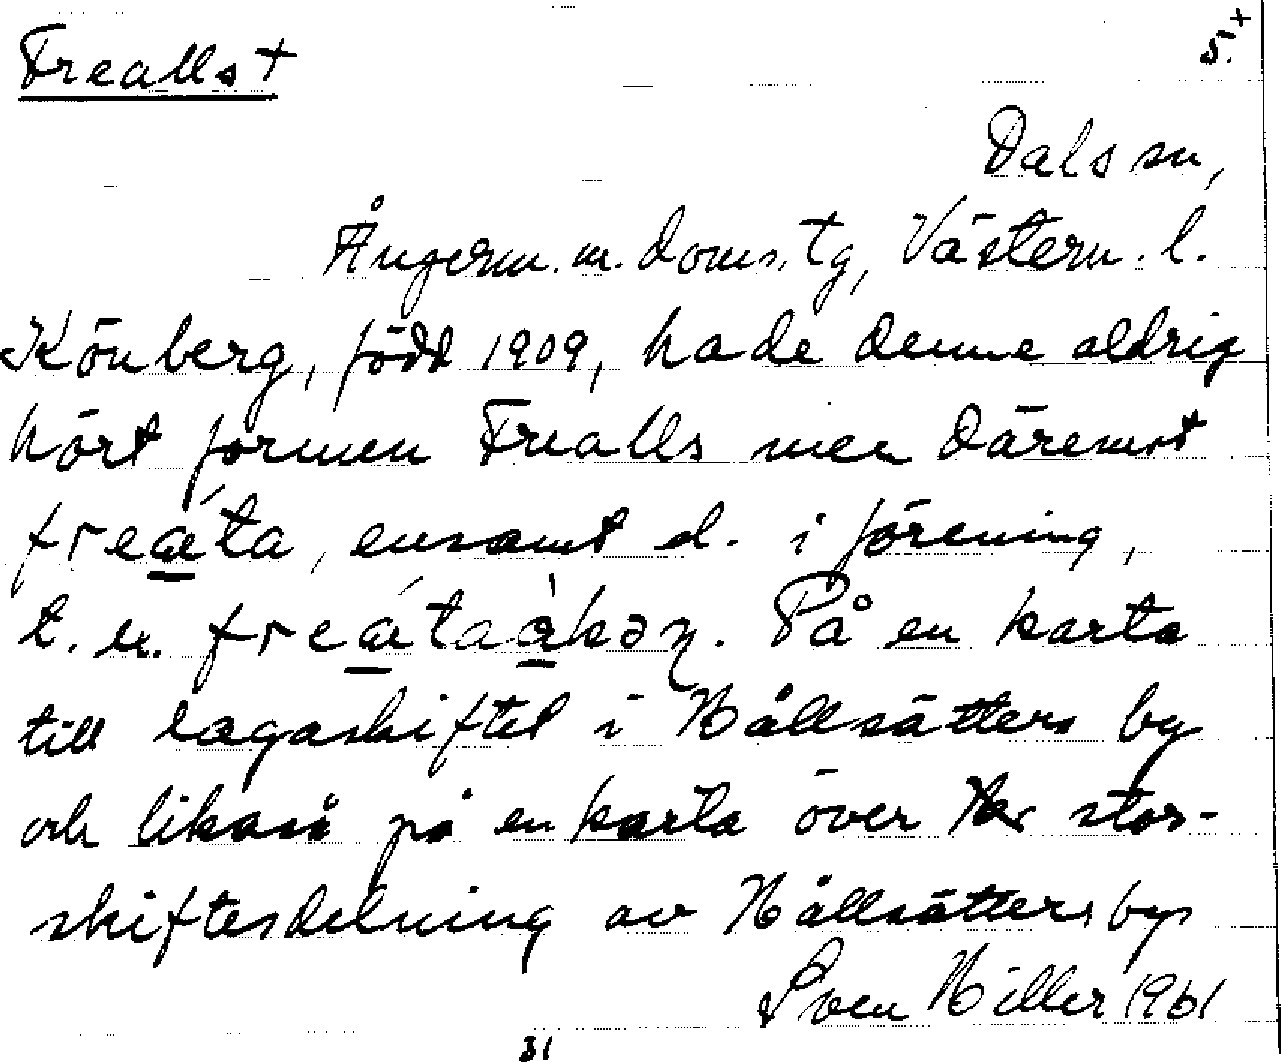 Frealls +
5.+
Dals sn,
Ångerm. m. doms. tg, Västern. l.
Könberg, född 1909, hade denne aldrig
hört formen Frealls men däremot
freáta, ensamt el. i förening,
t. ex. freátaàkəɳ. På en karta
till lagaskiftet i Hållsätters by
och likaså på en karta över stor-
skiftesdelning av Hållsätters by
Sven Hiller 1961
31